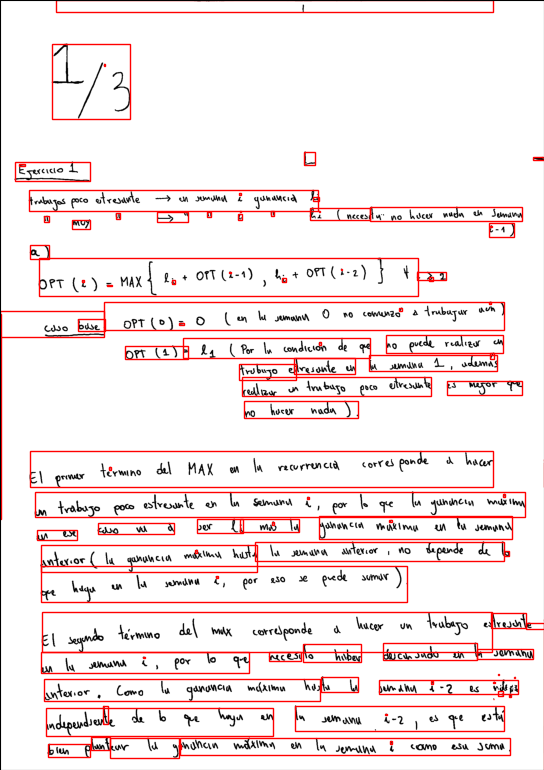 1/3
Ejercicio 1
trabajos poco estresante → en semana i ganancia li
" muy " → " " " hi (necesita: no hacer nada en semana
i-1)
a)
OPT (i) = MAX { li + OPT (i-1) , hi + OPT (i-2) } ∀ i ≥ 2
caso base OPT (0) = 0 (en la semana 0 no comenzo a trabajar aún)
OPT (1) = l1 (Por la condición de que no puede realizar un
trabajo estresante en la semana 1, además
realizar un trabajo poco estresante es mejor que
no hacer nada).
El primer término del MAX en la recurrencia corresponde a hacer
un trabajo poco estresante en la semana i, por lo que la ganancia máxima
en ese caso va a ser li más la ganancia máxima en la semana
anterior (la ganancia máxima hasta la semana anterior, no depende de lo
que haga en la semana i, por eso se puede sumar).
El segundo término del max corresponde a hacer un trabajo estresante
en la semana i, por lo que necesito haber descansado en la semana
anterior. Como la ganancia máxima hasta la semana i-2 es
independiente de lo que haga en la semana i-2, es que esta
bien plantear la ganancia máxima en la semana i como esa suma.